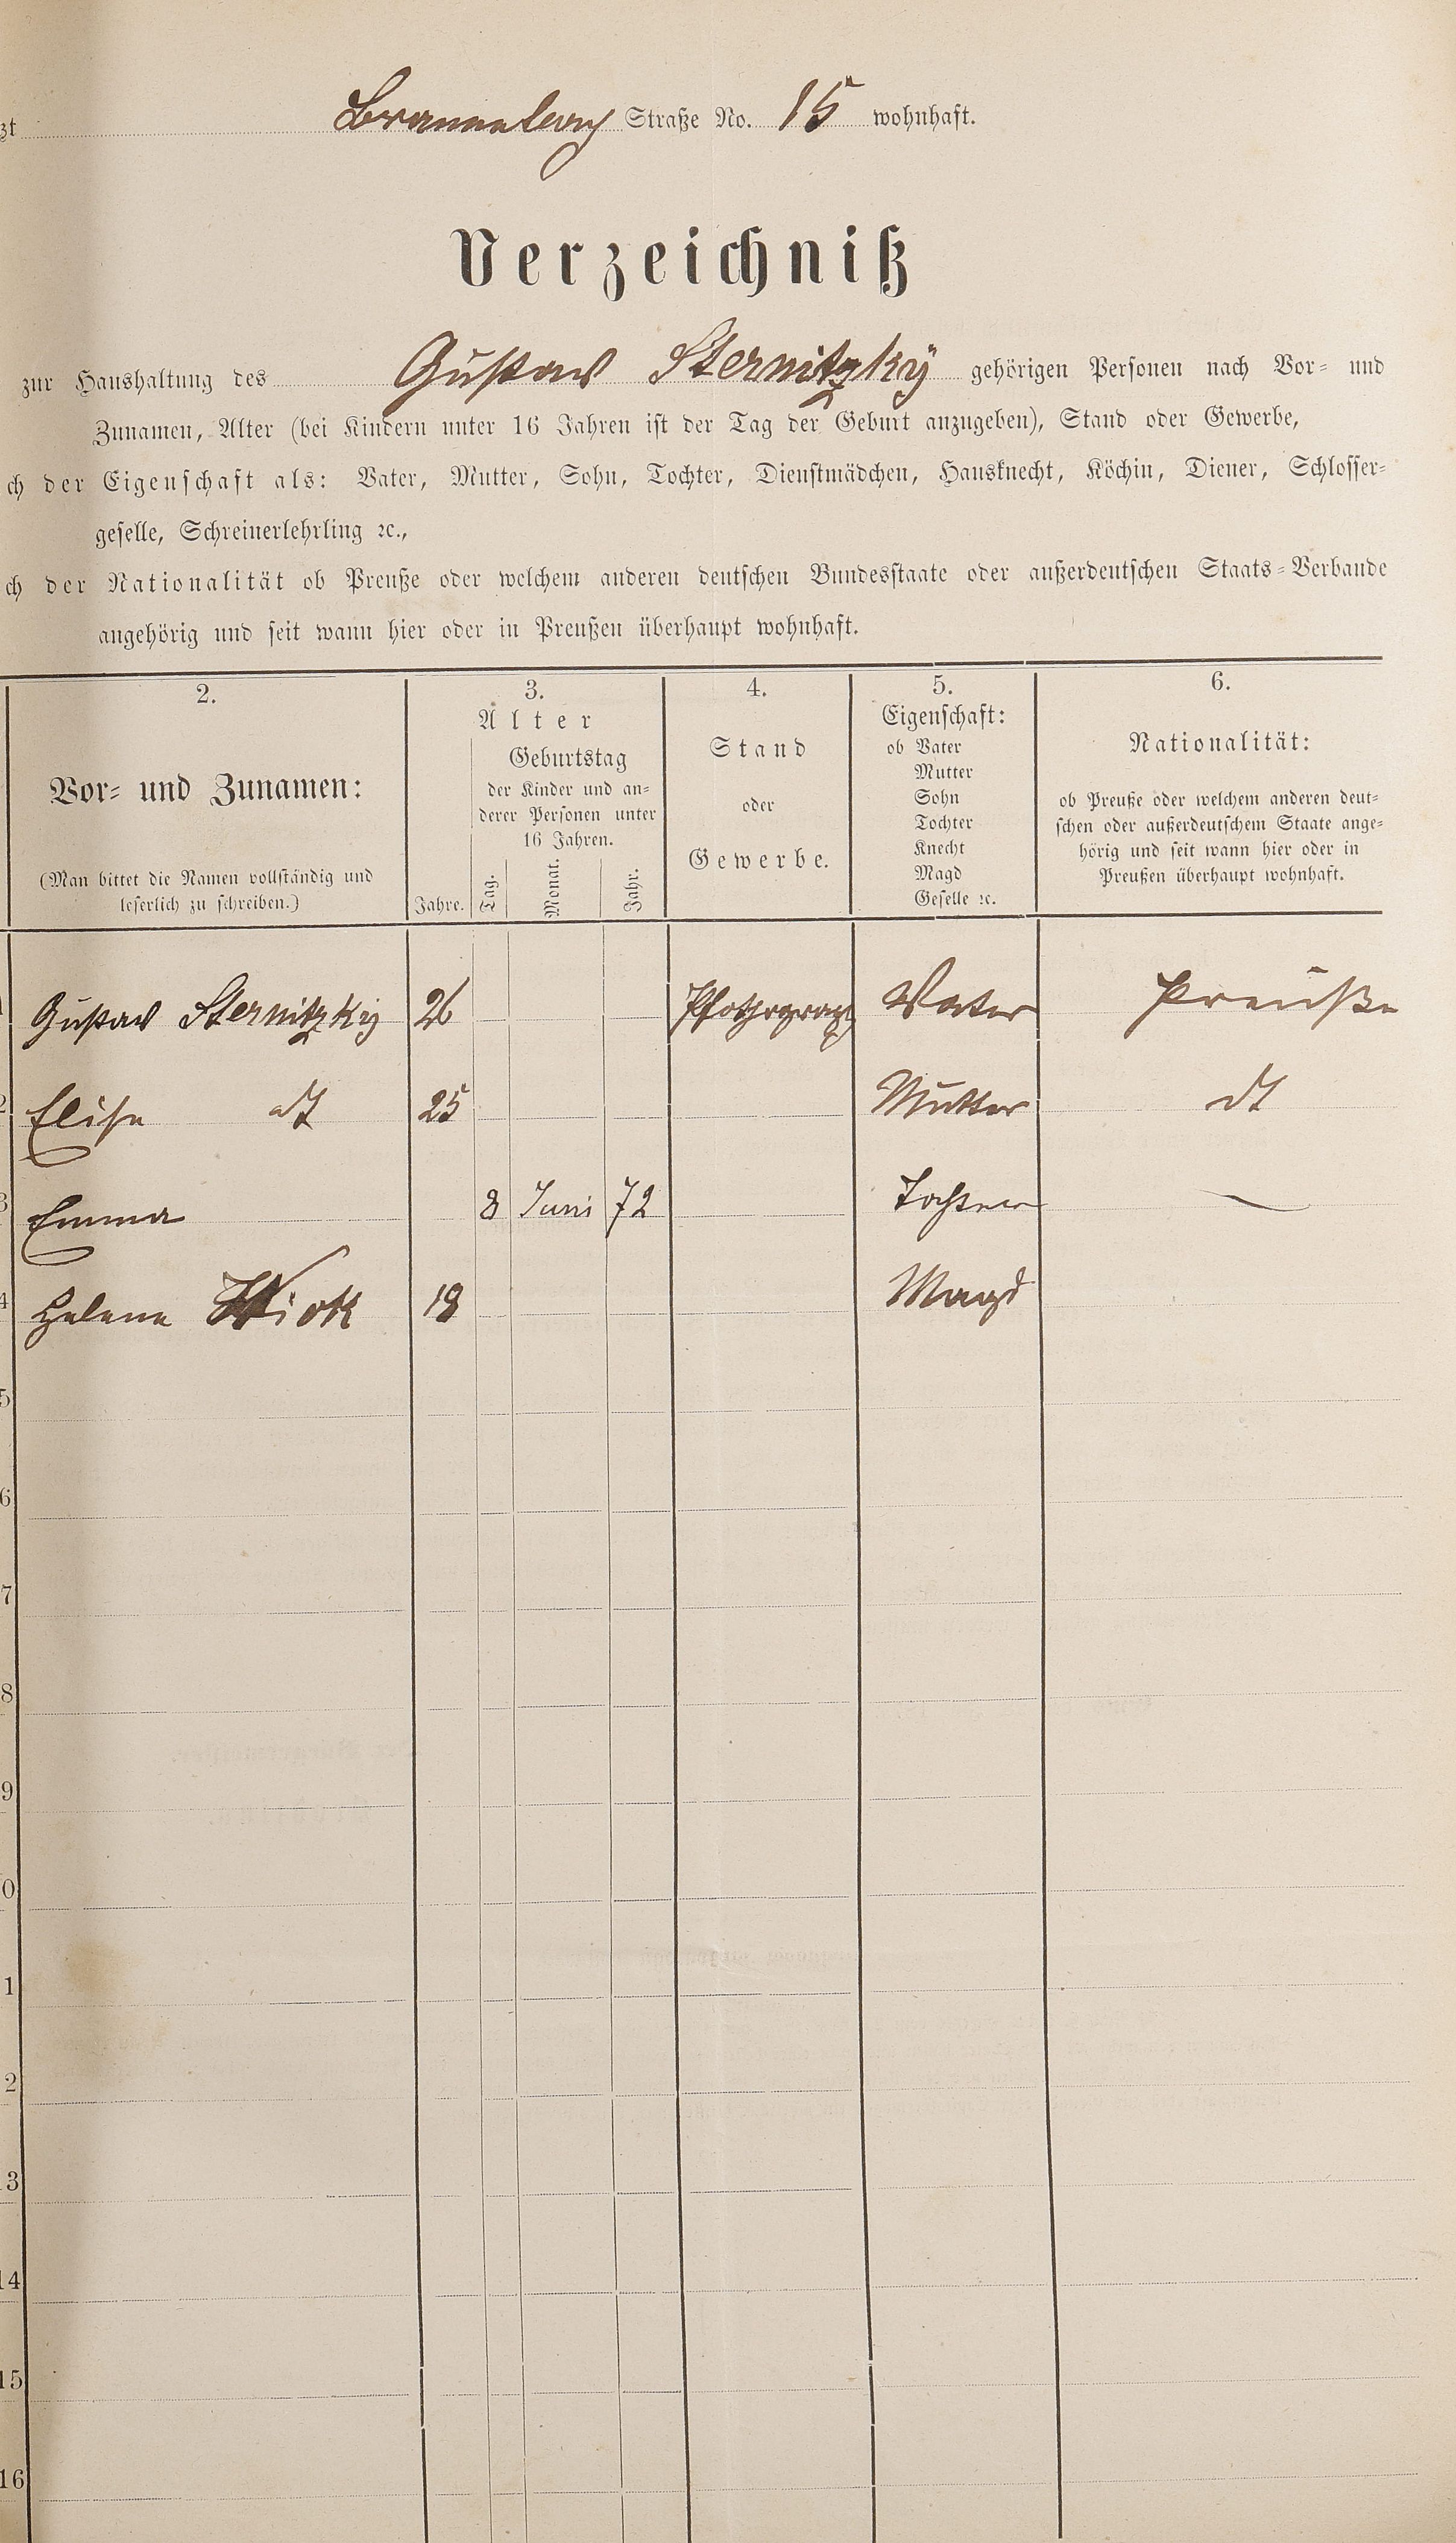 zt Brannenburg Straße No. 15 wohnhaft.
Verzeichniß
zur Haushaltung des Gustav Sternitzky gehörigen Personen nach Vor- und
Zunamen, Alter (bei Kindern unter 16 Jahren ist der Tag der Geburt anzugeben), Stand oder Gewerbe,
ch der Eigenschaft als: Vater, Mutter, Sohn, Tochter, Dienstmädchen, Hausknecht, Köchin, Diener, Schlosser-
geselle, Schreinerlehrling ꝛc.,
ch der Nationalität ob Preuße oder welchem anderen deutschen Bundesstaate oder außerdeutschen Staats-Verbande
angehörig und seit wann hier oder in Preußen überhaupt wohnhaft.
2. 3. 4. 5. 6.
Vor- und Zunamen:
(Man bittet die Namen vollständig und
leserlich zu schreiben.)
Alter
Geburtstag
der Kinder und an-
derer Personen unter
16 Jahren.
Jahre. Tag. Monat. Jahr.
Stand
oder
Gewerbe.
Eigenschaft:
ob Vater
Mutter
Sohn
Tochter
Knecht
Magd
Geselle ꝛc.
Nationalität:
ob Preuße oder welchem anderen deut-
schen oder außerdeutschem Staate ange-
hörig und seit wann hier oder in
Preußen überhaupt wohnhaft.
Gustav Sternitzky 26 Photograph Vater Preuße
2 Elise dt 25 Mutter dt
3 Emma 8 Juni 72 Tochter
4 Helene 18 Magd
5
6
7
8
9
0
1
2
13
14
15
16